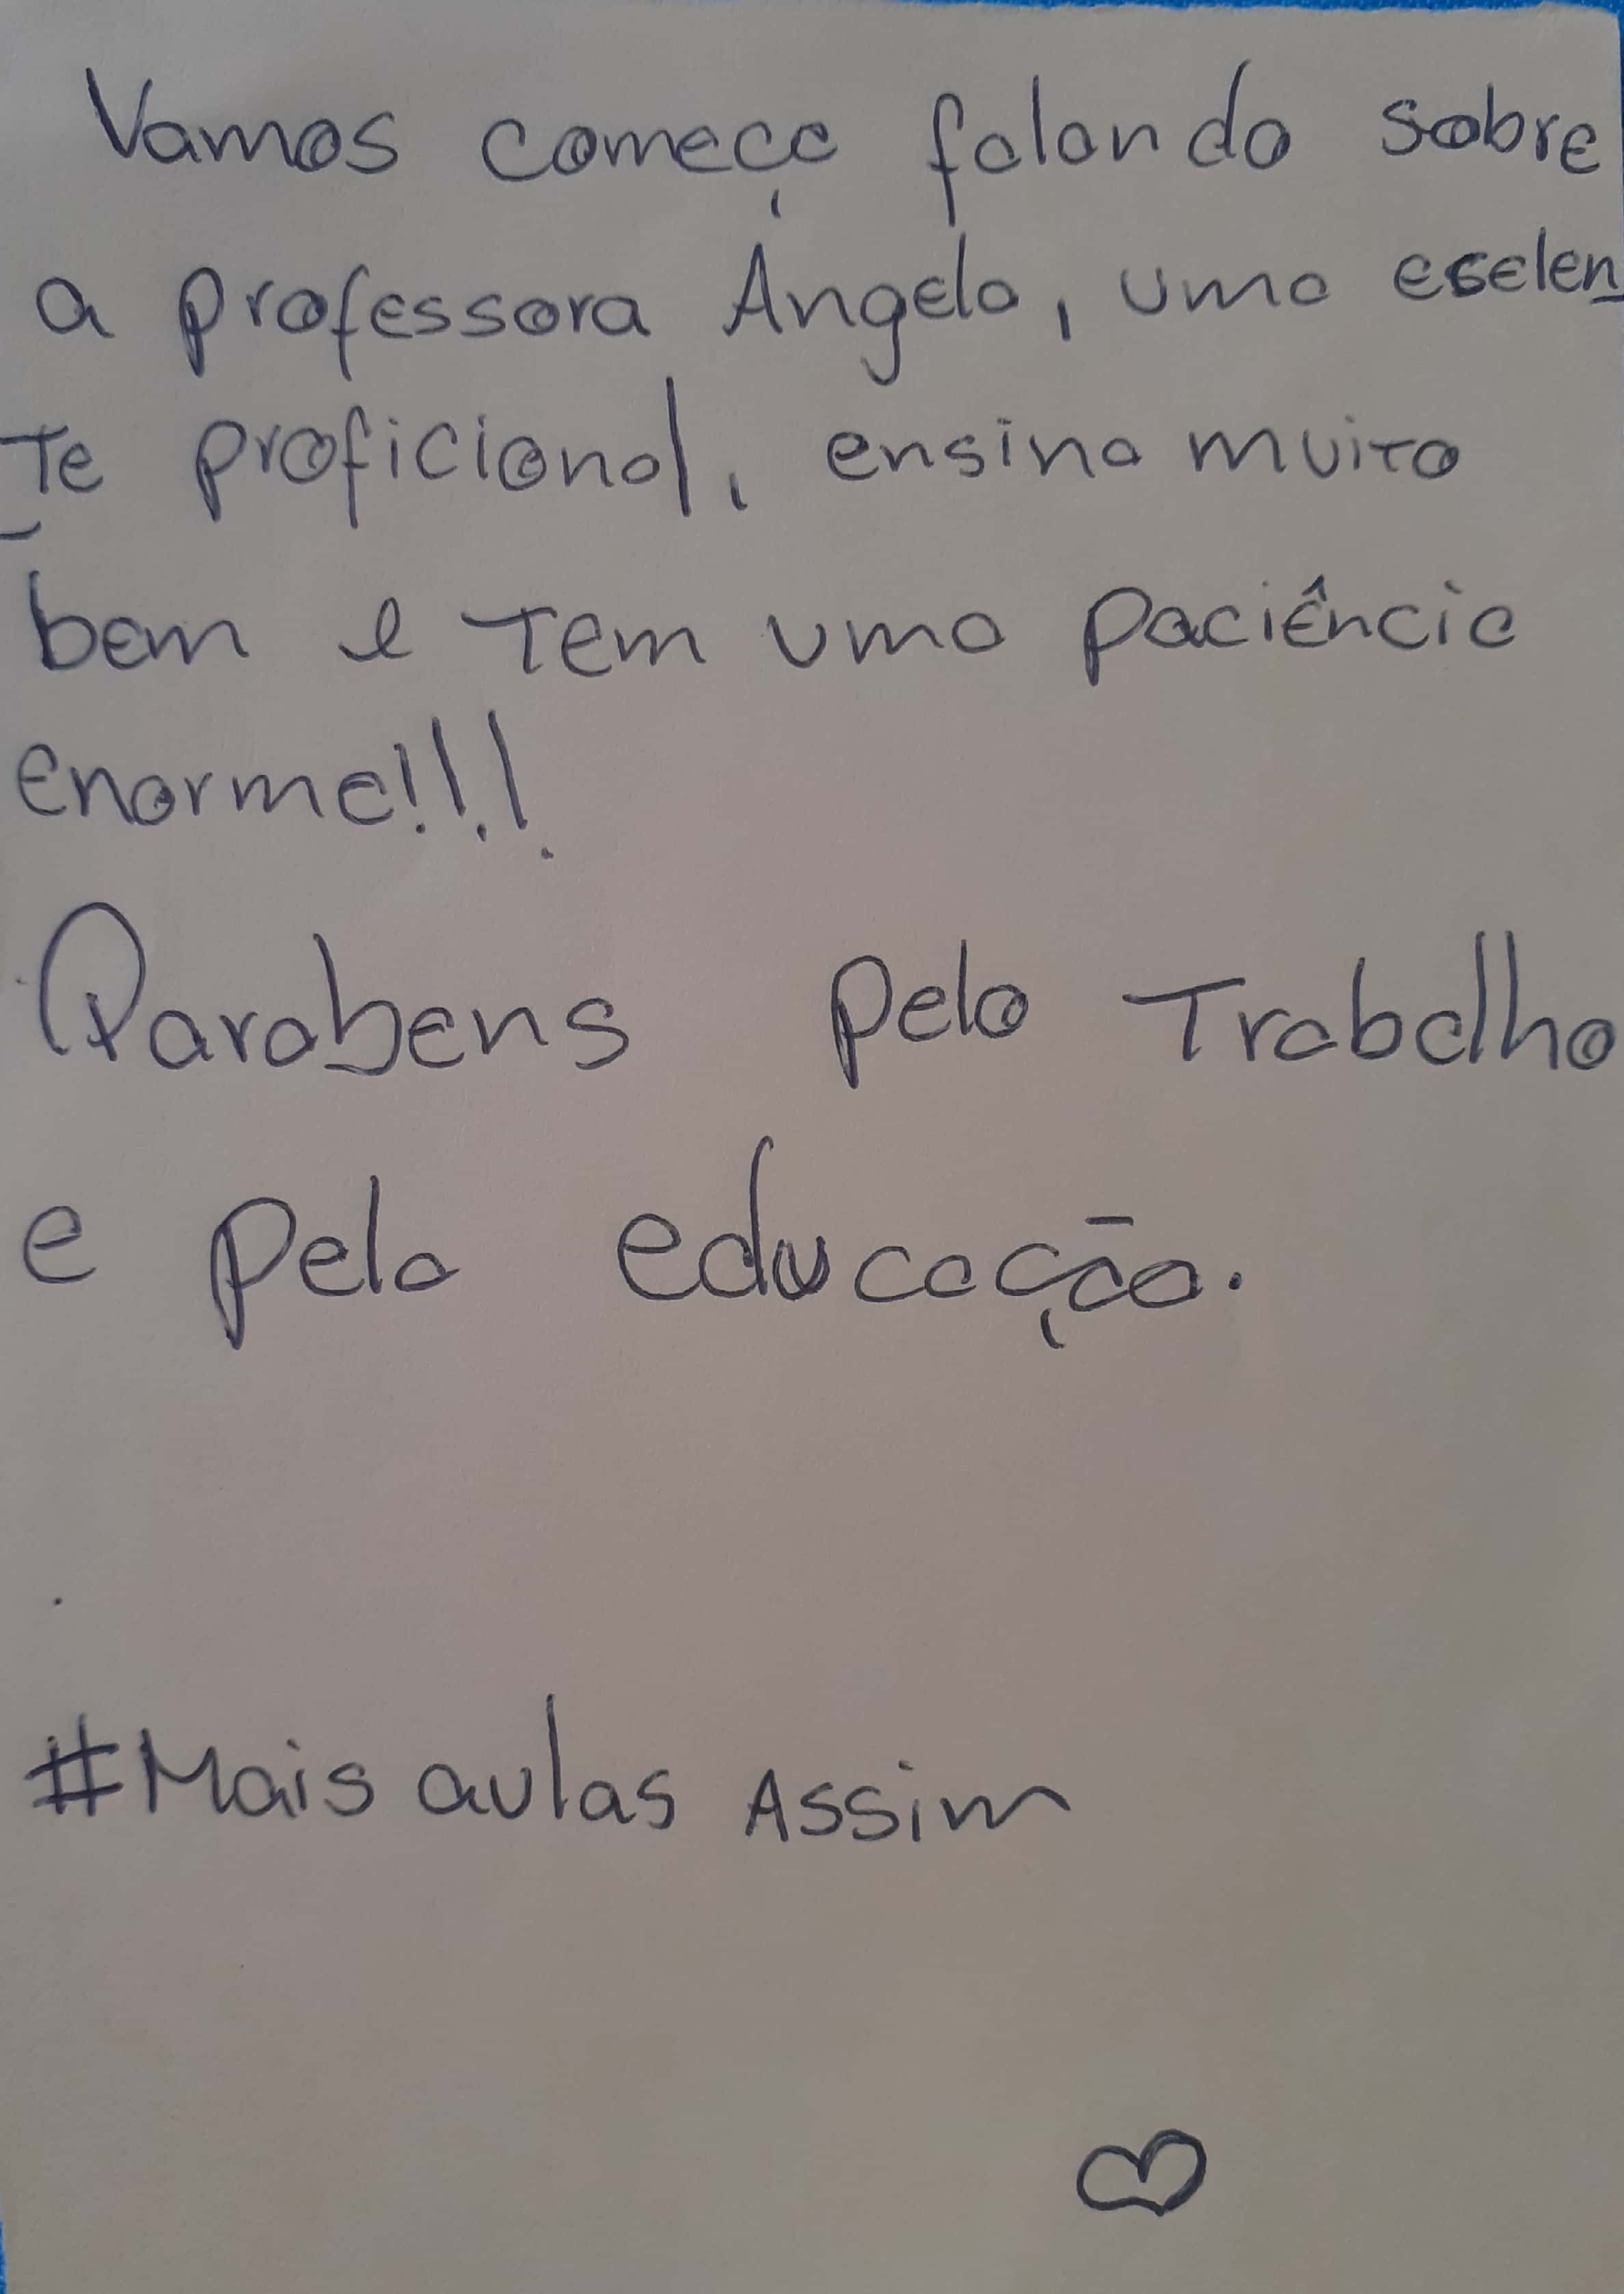 Vamos começa falando sobre
a professora Ángela, uma eselen
te proficional, ensina muito
bem e tem uma paciência
enorme!!!
Parabens pelo Trabalho
e pela educação.
#Mais aulas Assim